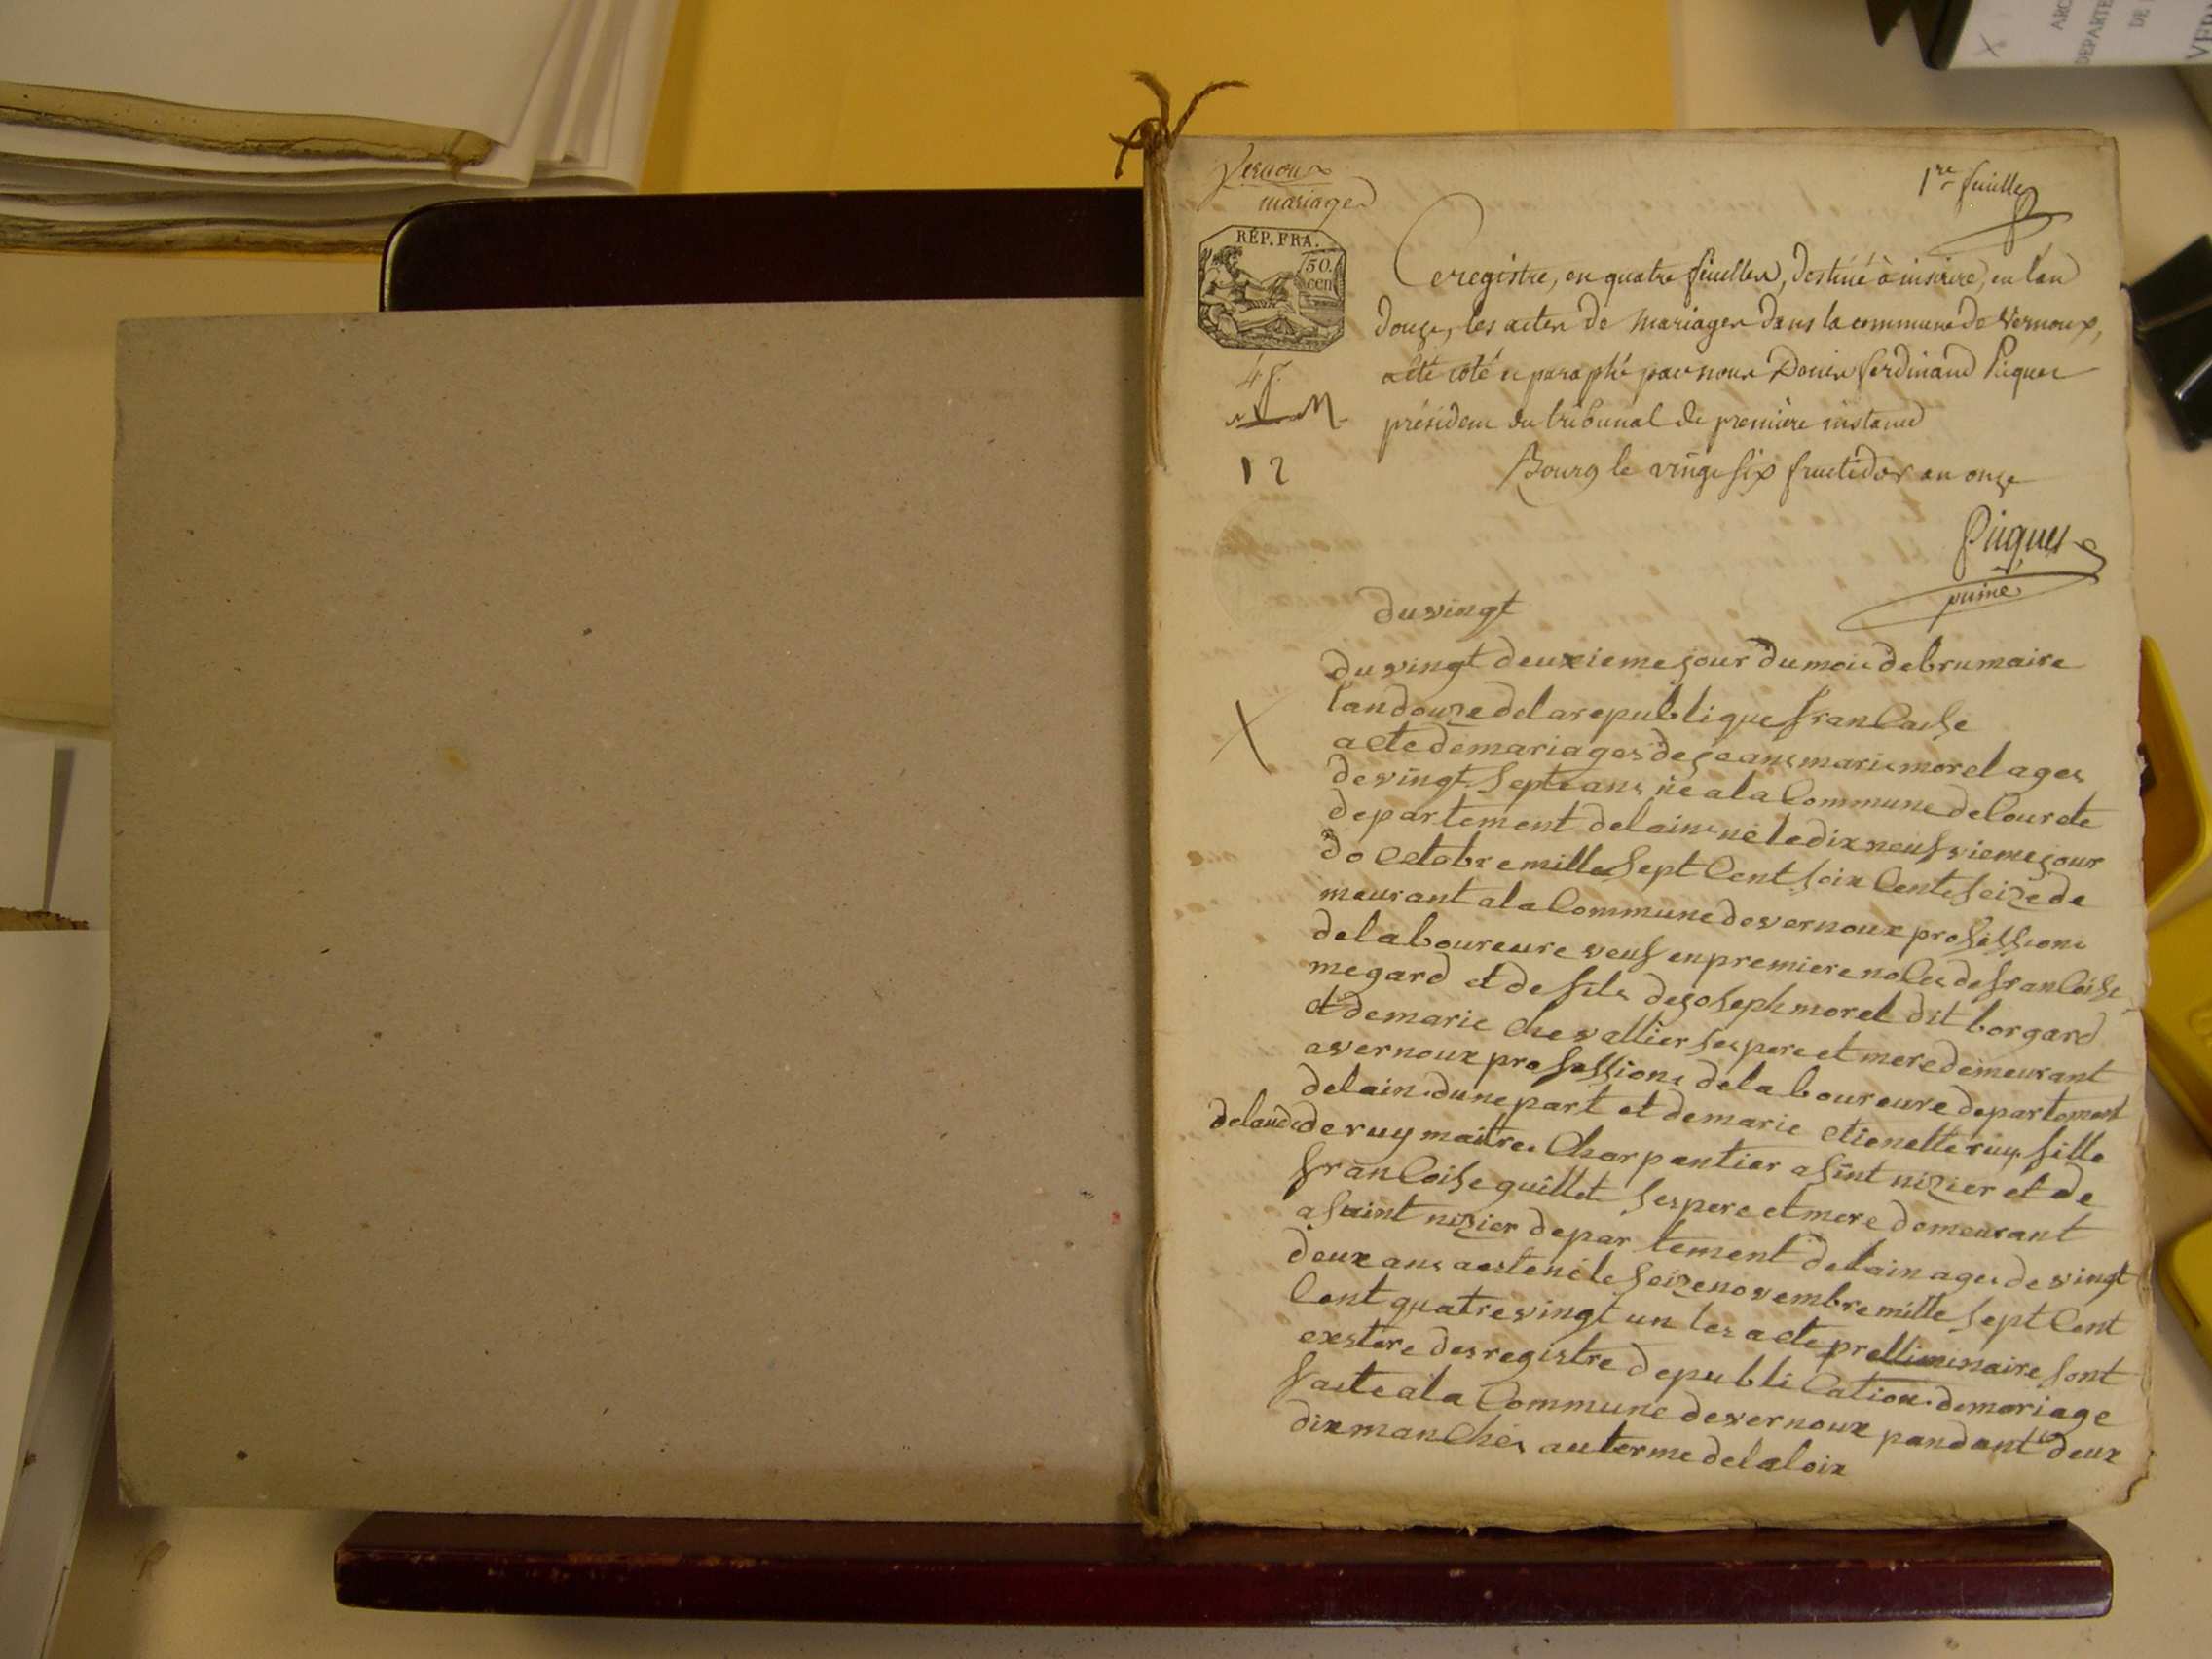 ARC
DEPARTE
DE
VER
X
Vernoux
mariages
1re feuille
RÉP. FRA.
50.
cen
4 f.
12
Ce registre, en quatre feuilles, destiné à inscrire, en l'an
douze, les actes de mariages dans la commune de Vernoux,
a été coté et paraphé par nous Denis ferdinand Piquet
président du tribunal de première instance
Bourg le vingt six fructidor an onze
Piquet
puiné
du vingt
du vingt deuxieme jour du mois de brumaire
lan douze de la republique francaise
X
acte de mariages de jeans marie morel ages
de vingt septe ans né a la Commune de Courete
departement delain né le dix neufvieme jour
do Octobre mille sept Cent soix Cente seize de
meurant a la Commune de vernoux professione
de laboureure veuf en premiere noces de francoise
megard et de fils de joseph morel dit borgard
et de marie Chevallier ses pere et mere demeurant
a vernoux professions de laboureure departement
de lain dune part et de marie etienette ruy fille
de laude de ruy maitre Charpantier a sint nizier et de
francoise guillet ses pere et mere demeurant
a saint nizier depar tement de lain ages de vingt
deux ans aeste né le seize novembre mille sept Cent
Cent quatre vingt un les acte prelliminaire sont
exstere des registre de publication de mariage
faite a la Commune de vernoux pandant deux
dixmanches au terme de la loix